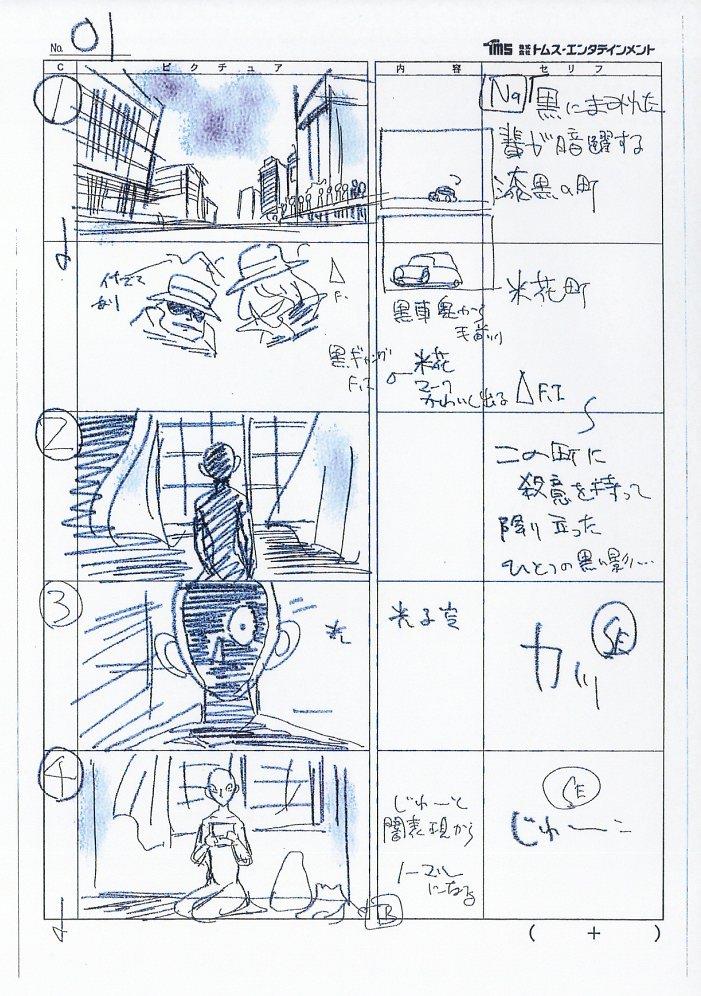 No. 01
TMS 株式会社 トムス・エンタテインメント
C ピクチュア 内容 セリフ
1
Na 「黒にまみれた
輩が暗躍する
漆黒の町
米花町
F.I.
黒車 奥から
手前
黒ギャング
F.I
米花
マーク
かわいく出る
F.I
2
この町に
殺意を持って
降り立った
ひとつの黒い影…
3
光る
SE
カッ
4
じわーと
闇表現から
ノーマル
になる
SE
じわーー
B
( + )